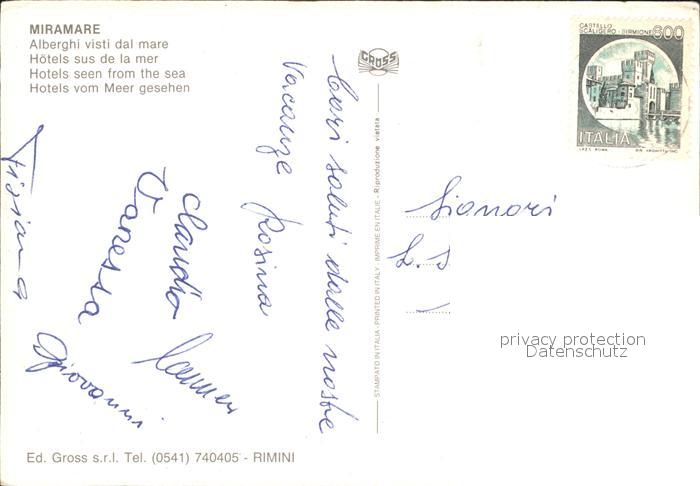 MIRAMARE
Alberghi visti dal mare
Hôtels sus de la mer
Hotels seen from the sea
Hotels vom Meer gesehen
GROSS
CASTELLO
SCALIGERO - SIRMIONE
600
ITALIA
I.P.Z.S. ROMA
STAMPATO IN ITALIA - PRINTED IN ITALY - IMPRIME EN ITALIE - Riproduzione vietata
Cari saluti dalle nostre
Vacanze Rosina
Claudia
Vanessa
Carmen
Giovanni
Tiziana
Signori
L. S
privacy protection
Datenschutz
Ed. Gross s.r.l. Tel. (0541) 740405 - RIMINI